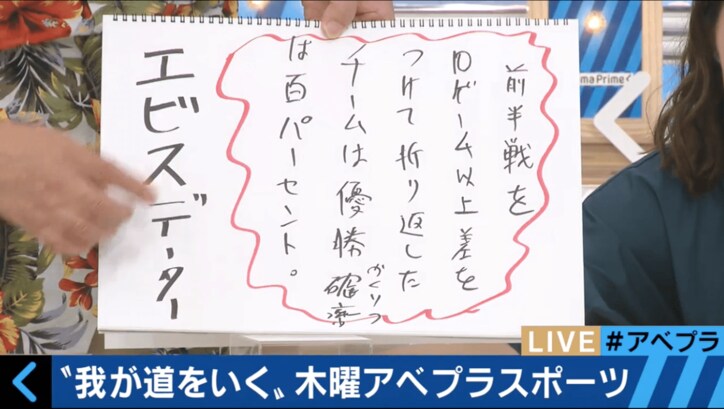 前半戦を
10ゲーム以上差を
つけて折り返した
チームは優勝確率
かくりつ
は百パーセント。
エビスデーター
maPrime
LIVE
#アベプラ
〝我が道をいく〟木曜アベプラスポーツ